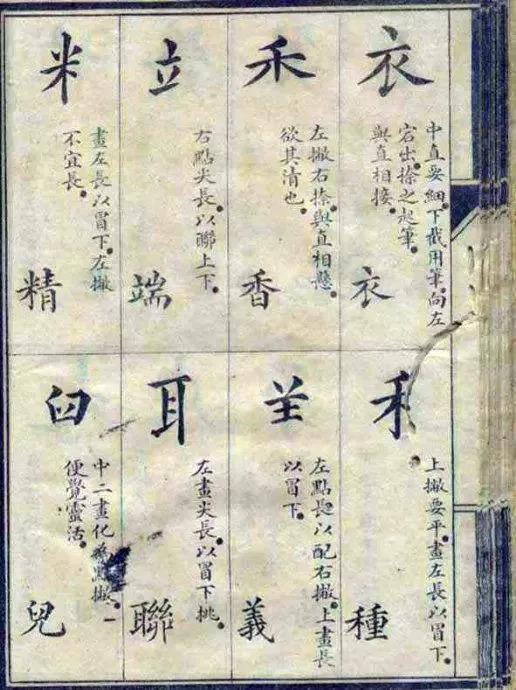 衣
中直要細。下截用筆向左
宕出。捺之起筆。
與直相接。
衣
禾
左撇右捺與直相懸。
欲其清也。
香
立
右點尖長。以聯上下。
端
米
畫左長以冒下。左撇
不宜長。
精
禾
上撇要平。畫左長以冒下。
種
𦍌
左點長以配右撇。上畫長
以冒下。
義
耳
左畫尖長。以冒下挑。
聯
臼
中二畫化為點撇。一
便覺靈活。
兒